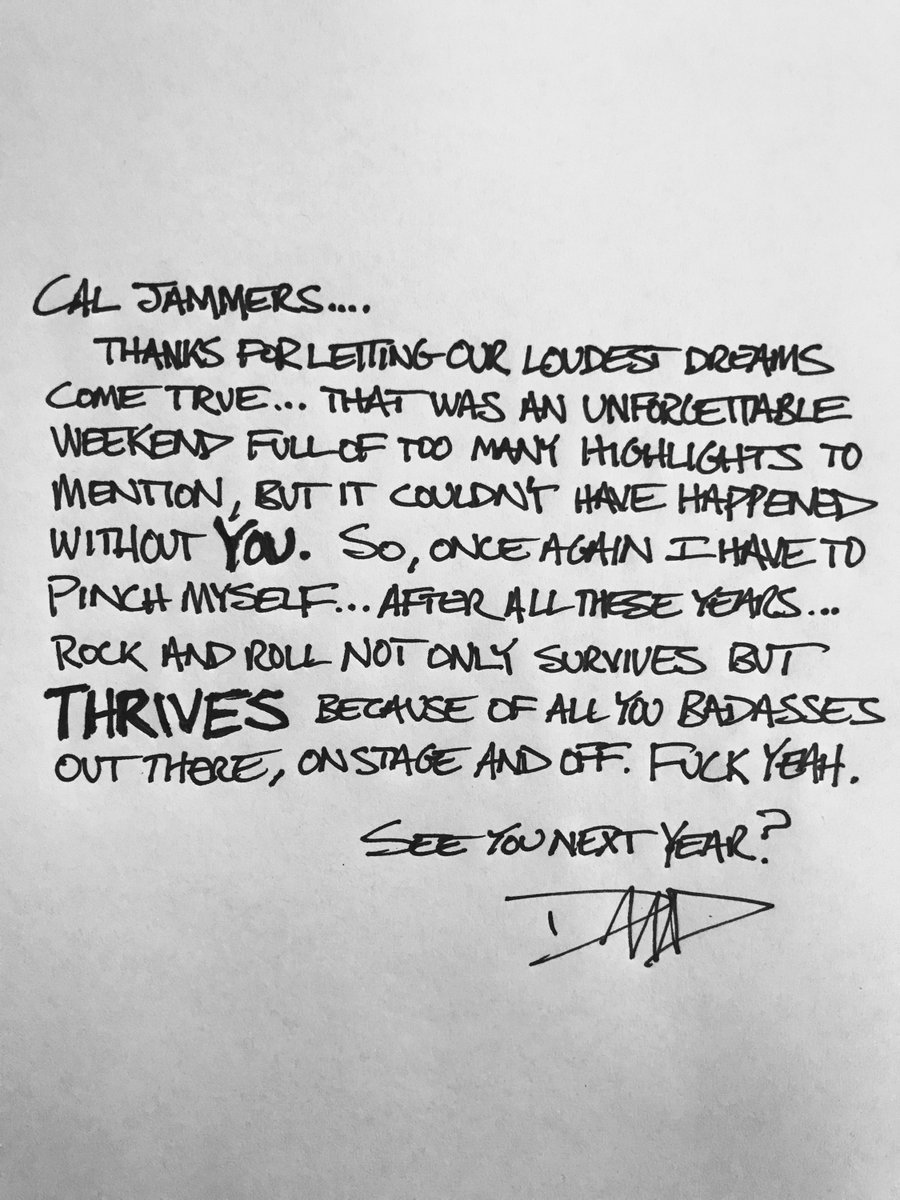 CAL JAMMERS....
THANKS FOR LETTING OUR LOUDEST DREAMS
COME TRUE... THAT WAS AN UNFORGETTABLE
WEEKEND FULL OF TOO MANY HIGHLIGHTS TO
MENTION, BUT IT COULDN'T HAVE HAPPENED
WITHOUT YOU. SO, ONCE AGAIN I HAVE TO
PINCH MYSELF... AFTER ALL THESE YEARS...
ROCK AND ROLL NOT ONLY SURVIVES BUT
THRIVES BECAUSE OF ALL YOU BADASSES
OUT THERE, ON STAGE AND OFF. FUCK YEAH.
SEE YOU NEXT YEAR?